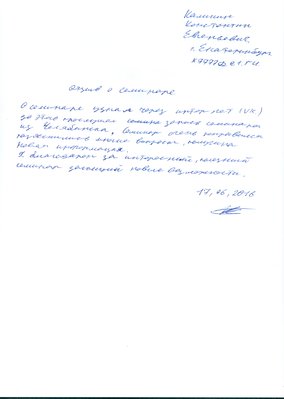 Калинин
Константин
Евгеньевич,
г. Екатеринбург
Отзыв о семинаре
О семинаре узнал через интернет (VK)
до этого просмотрел запись семинара
из Челябинска. Семинар очень понравился
многие вопросы, получена
новая информация.
Я благодарен за интересный, полезный
семинар дающий новые возможности.
17.06.2016